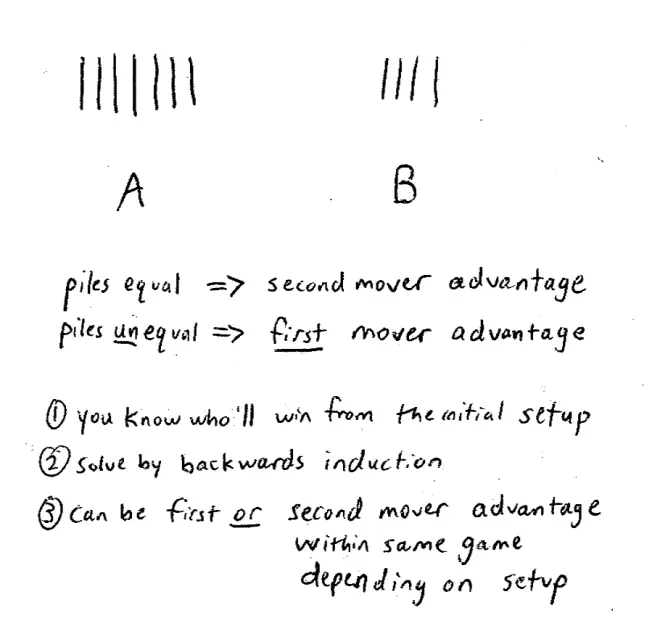 A B
piles equal => second mover advantage
piles unequal => first mover advantage
① you know who'll win from the initial setup
② Solve by backwards induction
③ Can be first or second mover advantage
within same game
depending on setup